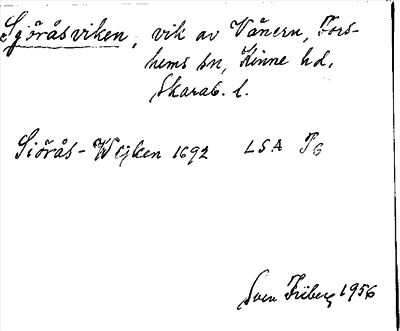 Sjöråsviken, vik av Vänern, Fors-
hems sn, Kinne hd,
Skarab. l.
Siörås-Wijken 1692 LSA T6
Sven Friberg 1956